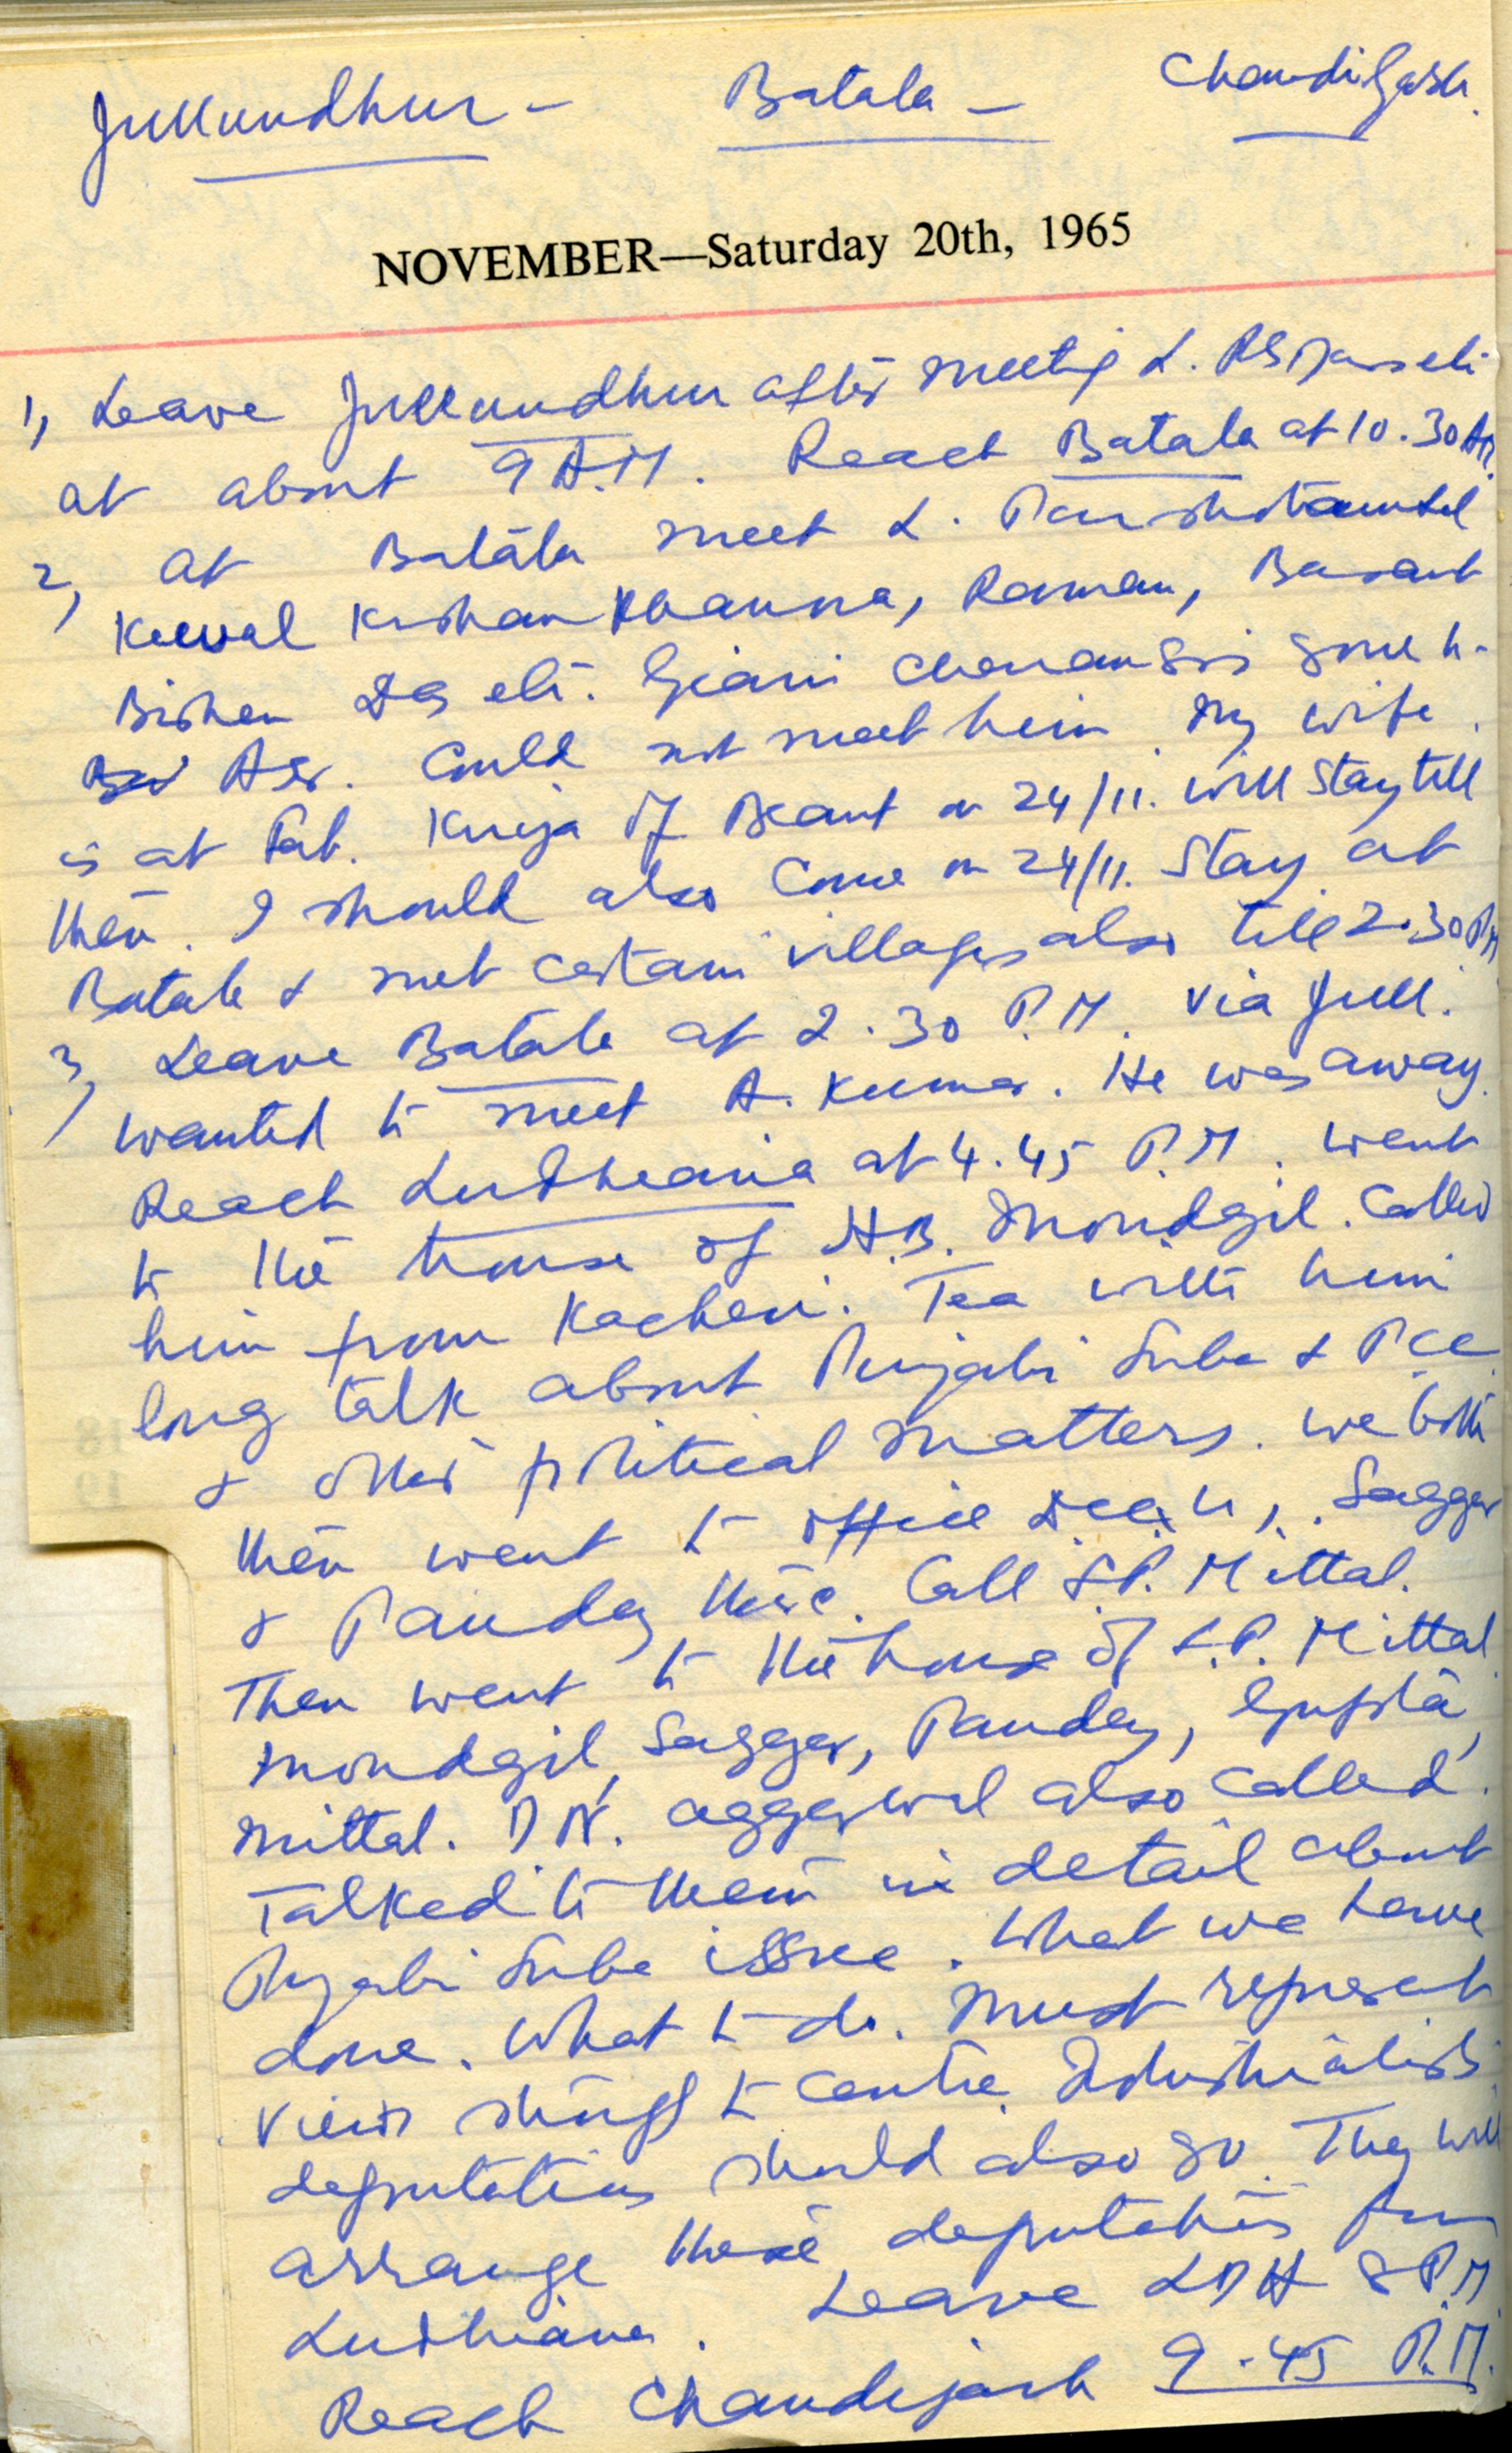 Jullundhur - Batala - Chandigarh.
NOVEMBER—Saturday 20th, 1965
1, Leave Jullundhur after meeting L.
at about 9 A.M. Reach Batala at 10.30 AM.
2, at Batala meet L.
Kewal Krishan Khanna, Raman, Basant
Bishan Das etc. Giani gone to
Asr. Could not meet him. My wife
is at Kirya of Beant on 24/11. Will stay till
then. I should also come on 24/11. Stay at
Batala & met certain villagers also till 2.30 PM
3, Leave Batala at 2.30 P.M. via Jull.
wanted to meet A. Kumar. He was away.
Reach Ludhiana at 4.45 P.M. went
to the house of H.B. Mondgil. Called
him from Kacheri. Tea with him
long talk about Punjabi Suba & PCC
& other political matters. We both
then went to office Saggar
& Pandey there. Call S.P. Mittal.
Then went to the house of S.P. Mittal.
Mondgil, Saggar, Pandey, Gupta,
Mittal. D.N. Aggarwal also called.
Talked to them in detail about
Punjabi Suba issue. What we have
done. What to do. Must represent
views to Centre. Industrialists
deputations should also go. They will
arrange these deputations from
Ludhiana. Leave LDH 8 P.M
Reach Chandigarh 9.45 P.M.